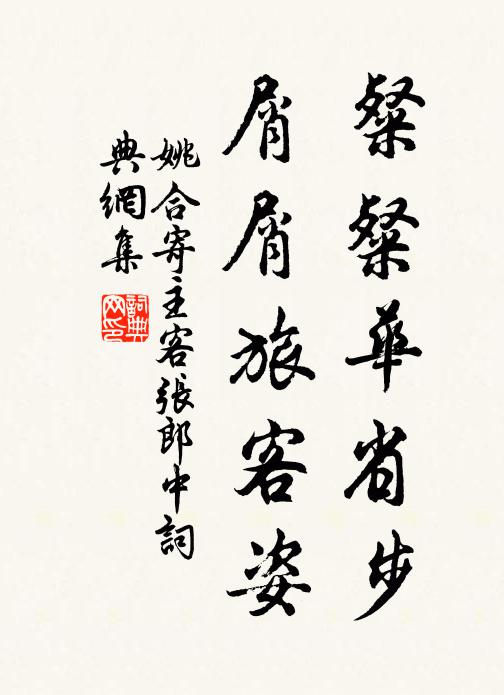 粲粲華省步
屑屑旅客姿
姚合寄主客張郎中詞
典網集
詞典网印